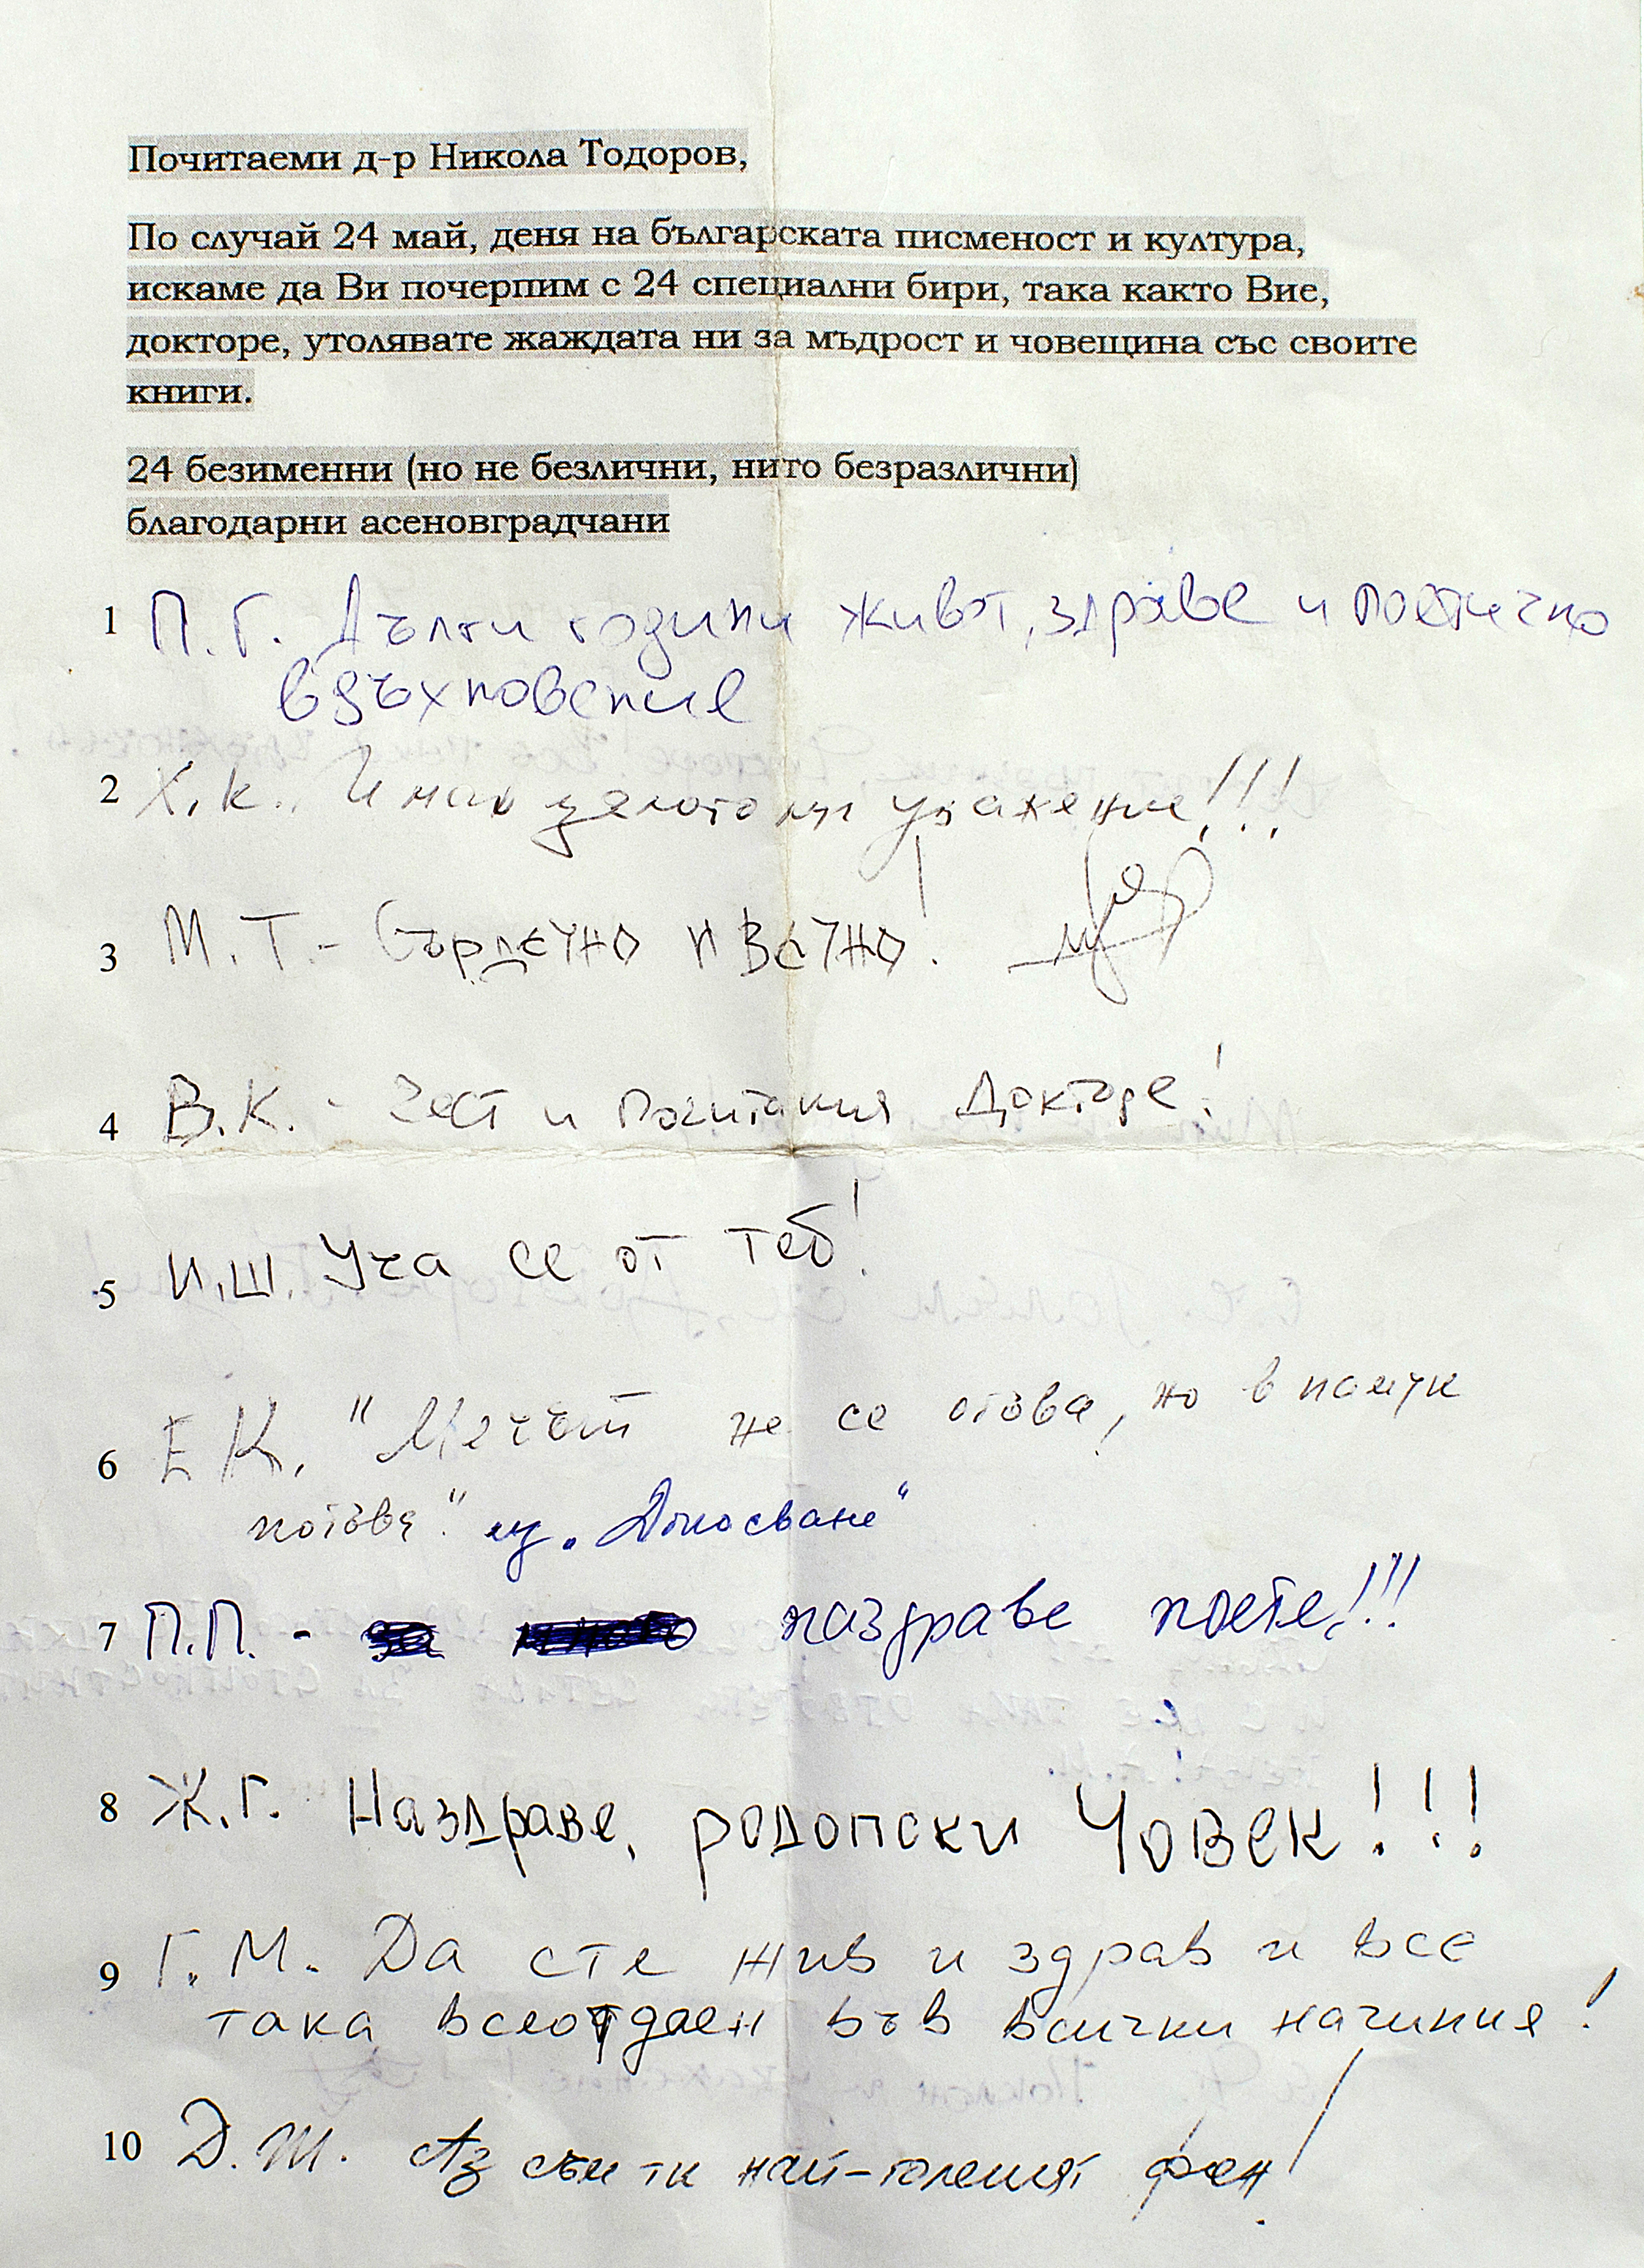 Почитаеми д-р Никола Тодоров,
По случай 24 май, деня на българската писменост и култура,
искаме да Ви почерпим с 24 специални бири, така както Вие,
докторе, утолявате жаждата ни за мъдрост и човещина със своите
книги.
24 безименни (но не безлични, нито безразлични)
благодарни асеновградчани
1 П. Г. Дълги години живот, здраве и поетично
вдъхновение
2 Х. К. Имаш цялото ми уважение!!!
3 М. Т. - Сърдечно и вечно!
4 В. К. - Чест и почитания Докторе!
5 И.Ш. Уча се от теб!
6 Е К. "Мечът не се отова, но в памук
потова." из „Докосване"
7 П.П. - наздраве поете!!!
8 Ж.Г. Наздраве, родопски Човек!!!
9 Г. М. Да сте жив и здрав и все
така всеотдаен във всички начиния!
10 Д. Ш. Аз съм ти най-големият фен!